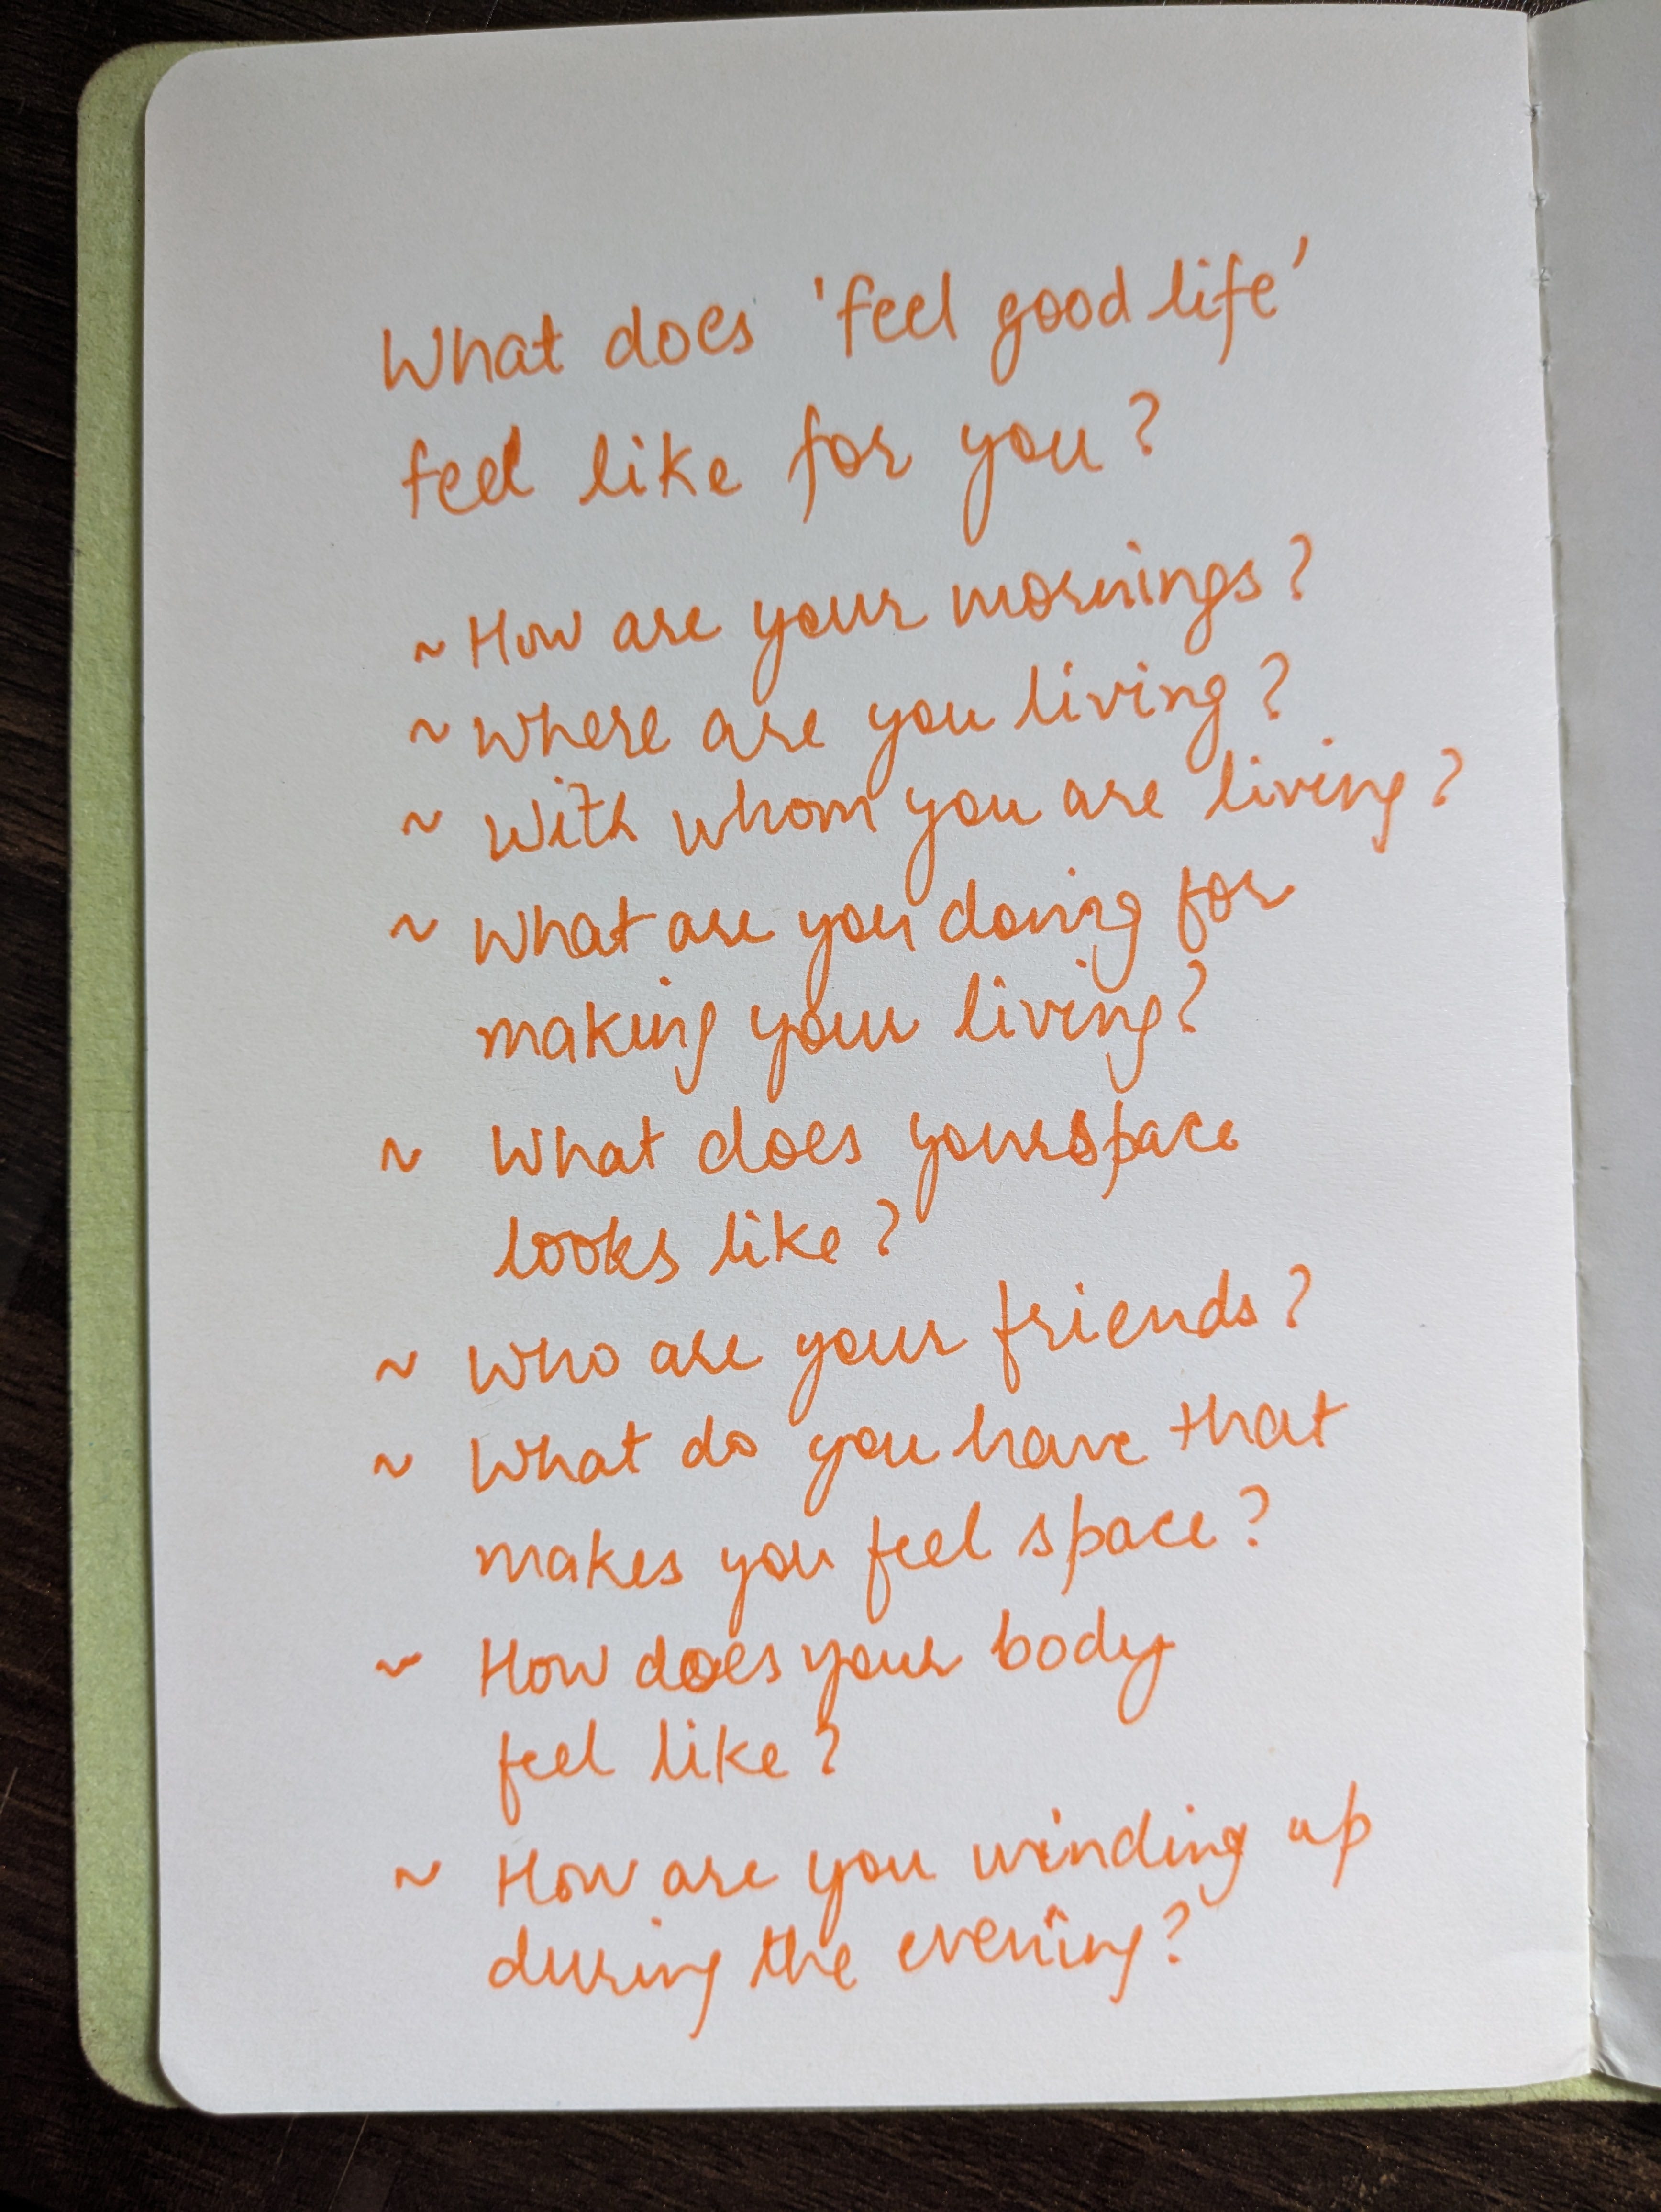 What does 'feel good life'
feel like for you?
~ How are your mornings?
~ Where are you living?
~ With whom you are living?
~ What are you doing for
making your living?
~ What does your space
looks like?
~ Who are your friends?
~ What do you have that
makes you feel space?
~ How does your body
feel like?
~ How are you winding up
during the evening?